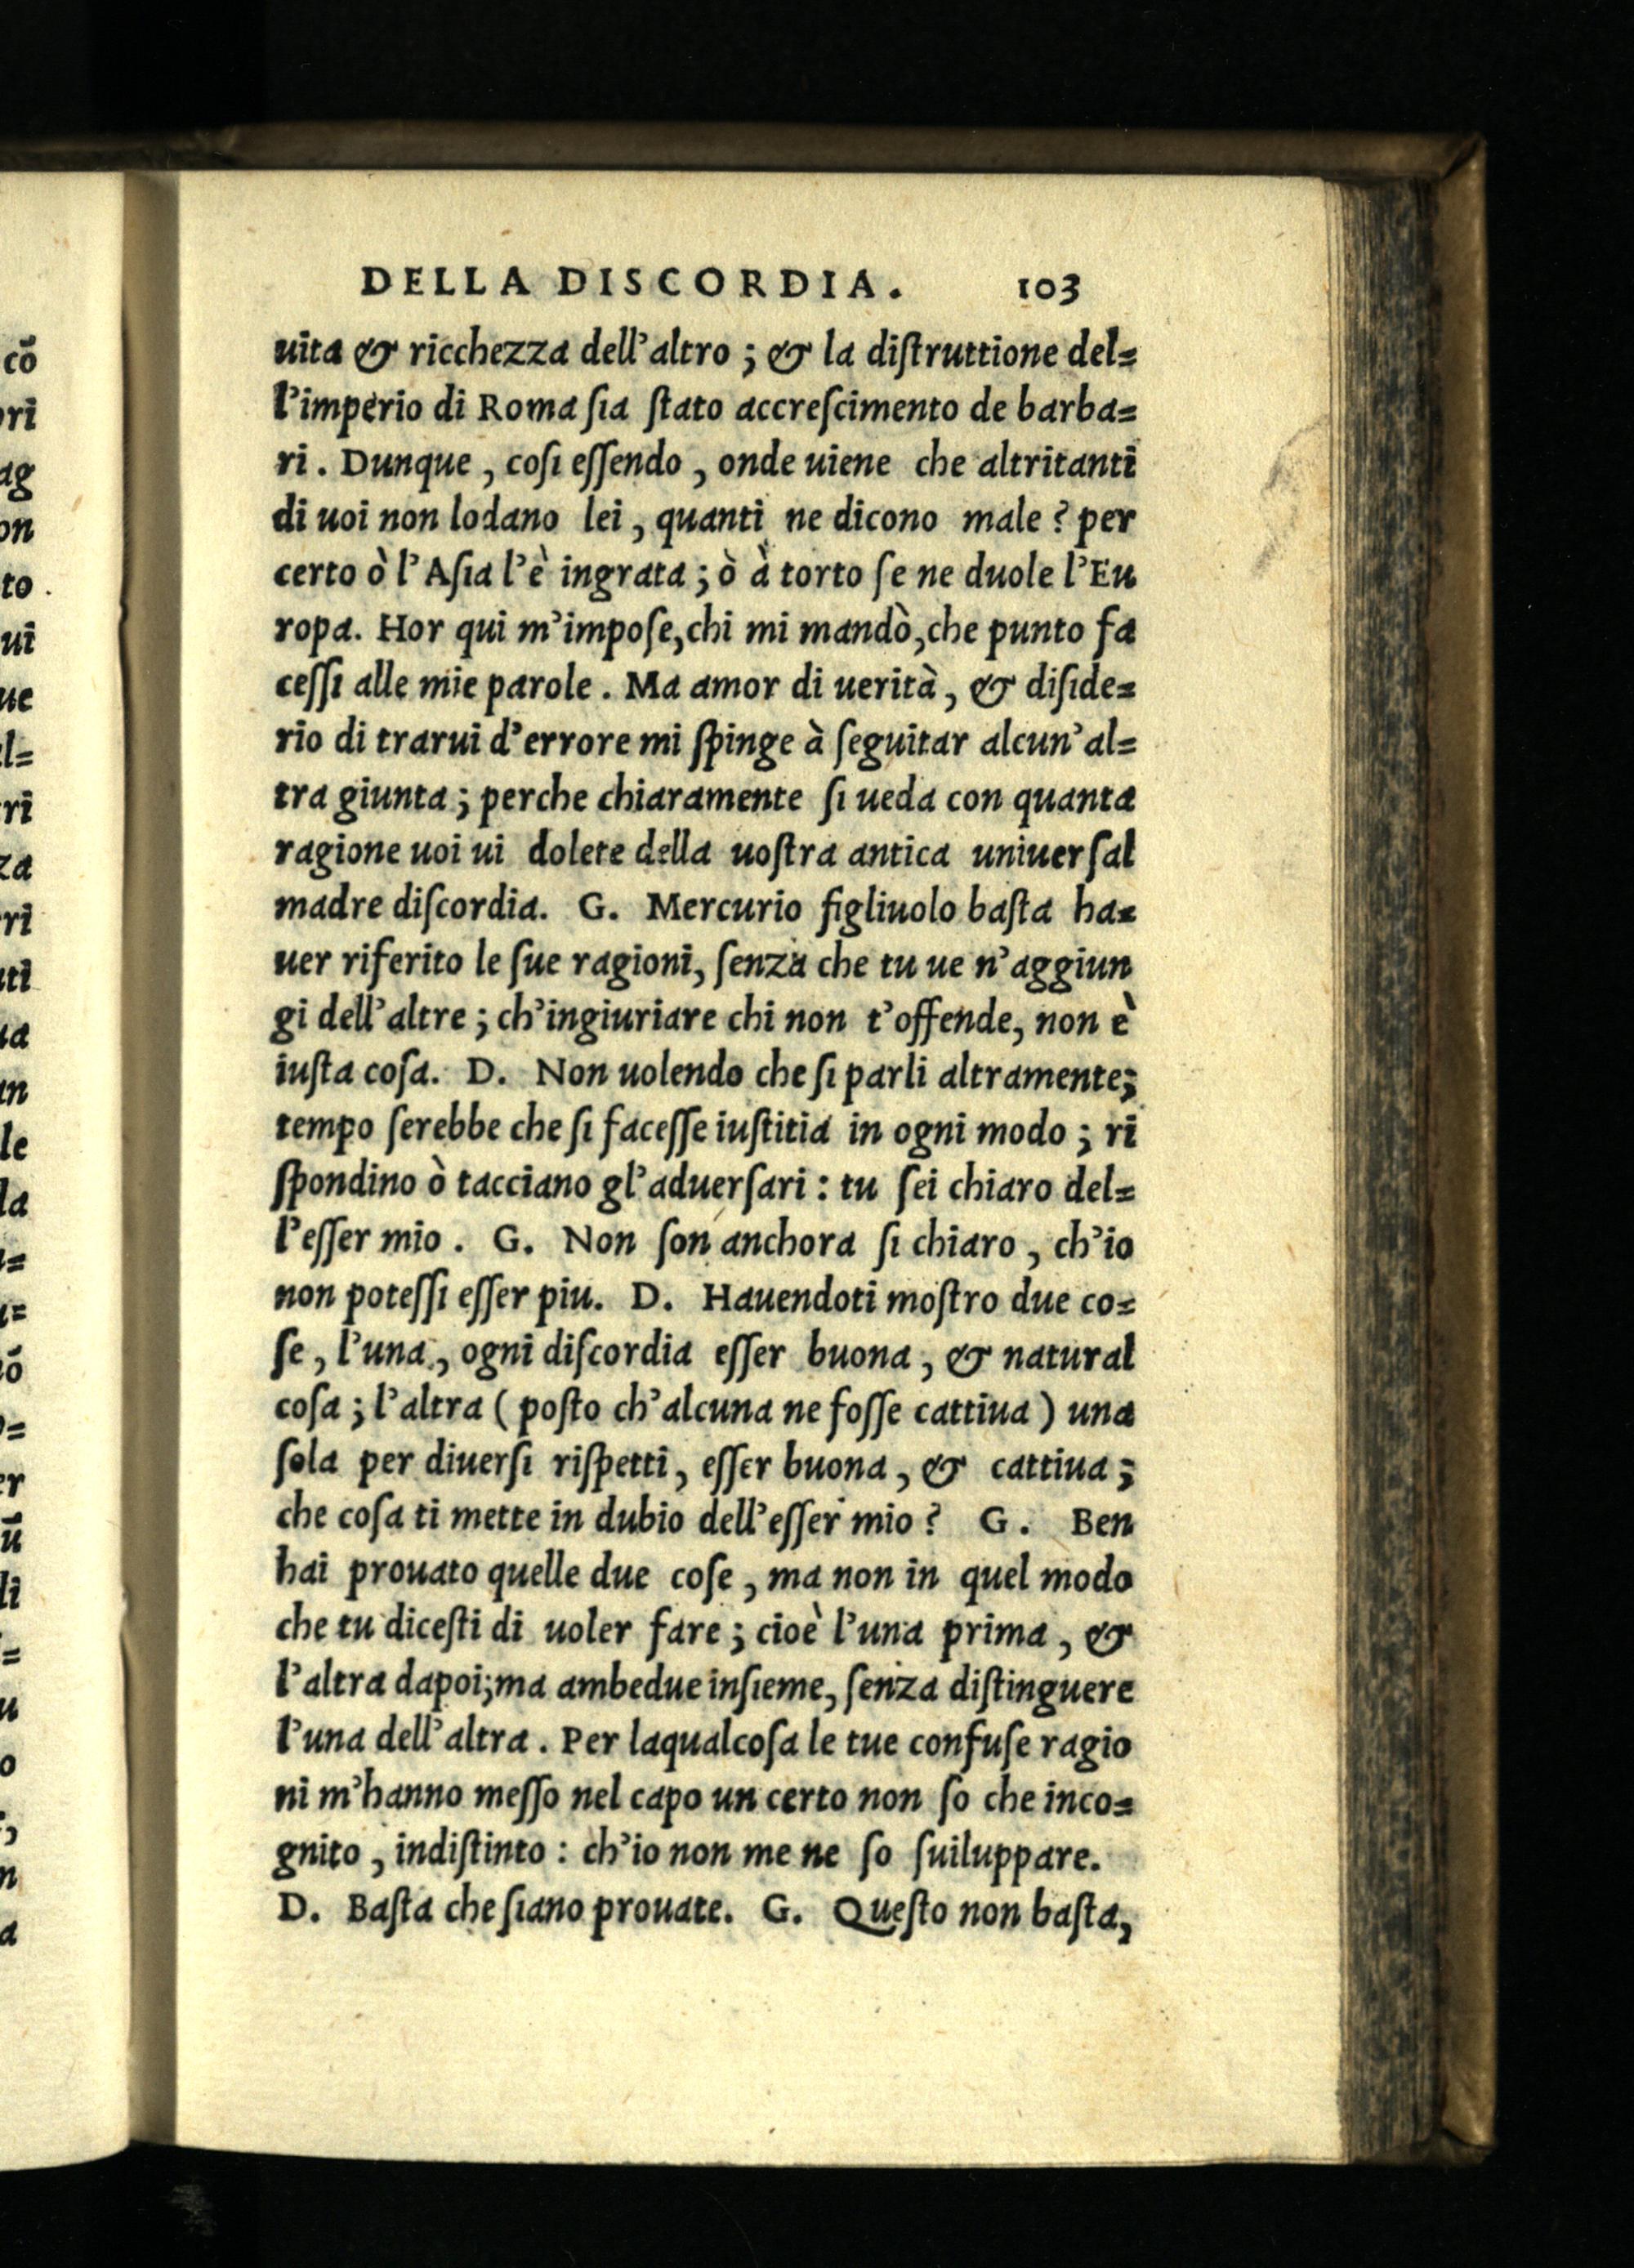 DELLA DISCORDIA. 103
uita & ricchezza dell'altro ; & la diſtruttione del=
l'imperio di Roma ſia ſtato accreſcimento de barba=
ri . Dunque , coſi eſſendo , onde uiene che altritanti
di uoi non lodano lei , quanti ne dicono male ? per
certo ò l'Aſia l'è ingrata ; ò à torto ſe ne duole l'Eu
ropa. Hor qui m'impoſe,chi mi mandò,che punto fa
ceſſi alle mie parole . Ma amor di uerità , & diſide=
rio di trarui d'errore mi ſpinge à ſeguitar alcun'al=
tra giunta ; perche chiaramente ſi ueda con quanta
ragione uoi ui dolete della uoſtra antica uniuerſal
madre diſcordia. G. Mercurio figliuolo baſta ha=
uer riferito le ſue ragioni, ſenza che tu ue n'aggiun
gi dell'altre ; ch'ingiuriare chi non t'offende, non è
iuſta coſa. D. Non uolendo che ſi parli altramente;
tempo ſerebbe che ſi faceſſe iuſtitia in ogni modo ; ri
ſpondino ò tacciano gl'aduerſari : tu ſei chiaro del=
l'eſſer mio . G. Non ſon anchora ſi chiaro , ch'io
non poteſſi eſſer piu. D. Hauendoti moſtro due co=
ſe , l'una , ogni diſcordia eſſer buona , & natural
coſa ; l'altra ( poſto ch'alcuna ne foſſe cattiua ) una
ſola per diuerſi riſpetti , eſſer buona , & cattiua ;
che coſa ti mette in dubio dell'eſſer mio ? G. Ben
hai prouato quelle due coſe , ma non in quel modo
che tu diceſti di uoler fare ; cioè l'una prima , &
l'altra dapoi;ma ambedue inſieme, ſenza diſtinguere
l'una dell'altra . Per laqualcoſa le tue confuſe ragio
ni m'hanno meſſo nel capo un certo non ſo che inco=
gnito , indiſtinto : ch'io non me ne ſo ſuiluppare.
D. Baſta che ſiano prouate. G. Queſto non baſta,